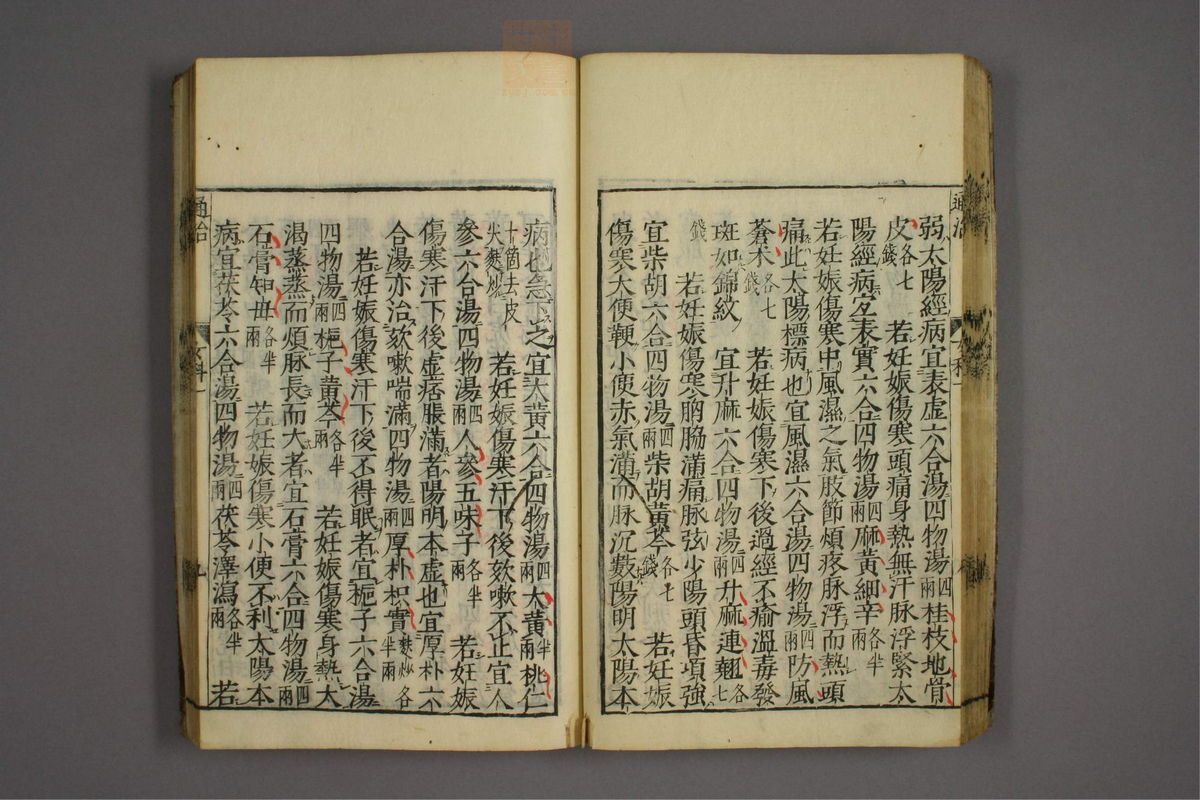 弱太陽經病宜表虛六合湯四物湯四兩桂枝地骨
皮各七錢　若妊娠傷寒頭痛身熱無汗脉浮緊太
陽經病宜表實六合四物湯四兩麻黃細辛各半兩
若妊娠傷寒中風濕之氣肢節煩疼脉浮而熱頭
痛此太陽標病也宜風濕六合湯四物湯四兩防風
蒼朮各七錢　若妊娠傷寒下後過經不愈溫毒發
斑如錦紋　宜升麻六合四物湯四兩升麻連翹各七
錢　若妊娠傷寒胸脇滿痛脉弦少陽頭昏項強
宜柴胡六合四物湯四兩柴胡黃芩各七錢　若妊娠
傷寒大便鞕小便赤氣滿而脉沉數陽明太陽本
病也急下之宜大黃六合四物湯四兩大黃半兩桃仁
十箇去皮尖麩炒　若妊娠傷寒汗下後欬嗽不止宜人
參六合湯四物湯四兩人參五味子各半兩　若妊娠
傷寒汗下後虛痞脹滿者陽明本虛也宜厚朴六
合湯亦治欬嗽喘滿四物湯四兩厚朴枳實麩炒各半兩
若妊娠傷寒汗下後不得眠者宜梔子六合湯
四物湯四兩梔子黃芩各半兩　若妊娠傷寒身熱大
渴蒸蒸而煩脉長而大者宜石膏六合四物湯四兩
石膏知母各半兩　若妊娠傷寒小便不利太陽本
病宜茯苓六合湯四物湯四兩茯苓澤瀉各半兩　若
通治
女科一
九